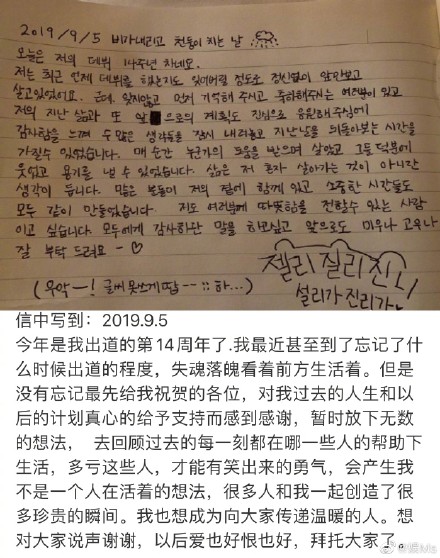 2019/9/5 비가내리고 천둥이 치는 날
오늘은 저의 데뷔 14주년 차네요.
저는 최근 언제 데뷔를 한지도 잊어버릴 정도로 정신없이 앞만보고
살고있었어요. 근데, 잊지않고 먼저 기억해 주시고 축하해주시는 여러분이 있고
저의 지난 삶과 또 앞으로의 계획도 진심으로 응원해주심에
감사함을 느껴 수 많은 생각들을 잠시 내려놓고 지난날을 되돌아보는 시간을
가질수 있었습니다. 매 순간 누군가의 도움을 받으며 살았고 그들 덕분에
웃었고 용기를 낼 수 있었습니다. 삶은 저 혼자 살아가는 것이 아니란
생각이 듭니다. 많은 분들이 저의 곁에 함께 있고 소중한 시간들도
모두 같이 만들었습니다. 저도 여러분께 따뜻함을 전할수 있는 사람
이고 싶습니다. 모두에게 감사하단 말을 하고싶고 앞으로도 미우나 고우나
잘 부탁 드려요 ~ ♡
젤리 질리 진니
설리가 진리가
(우악-! 글씨 못쓰게땀-- :: 하...)
信中写到：2019.9.5
今年是我出道的第14周年了.我最近甚至到了忘记了什
么时候出道的程度，失魂落魄看着前方生活着。但是
没有忘记最先给我祝贺的各位，对我过去的人生和以
后的计划真心的给予支持而感到感谢，暂时放下无数
的想法， 去回顾过去的每一刻都在哪一些人的帮助下
生活，多亏这些人，才能有笑出来的勇气，会产生我
不是一个人在活着的想法，很多人和我一起创造了很
多珍贵的瞬间。我也想成为向大家传递温暖的人。想
对大家说声谢谢，以后爱也好恨也好，拜托大家了。